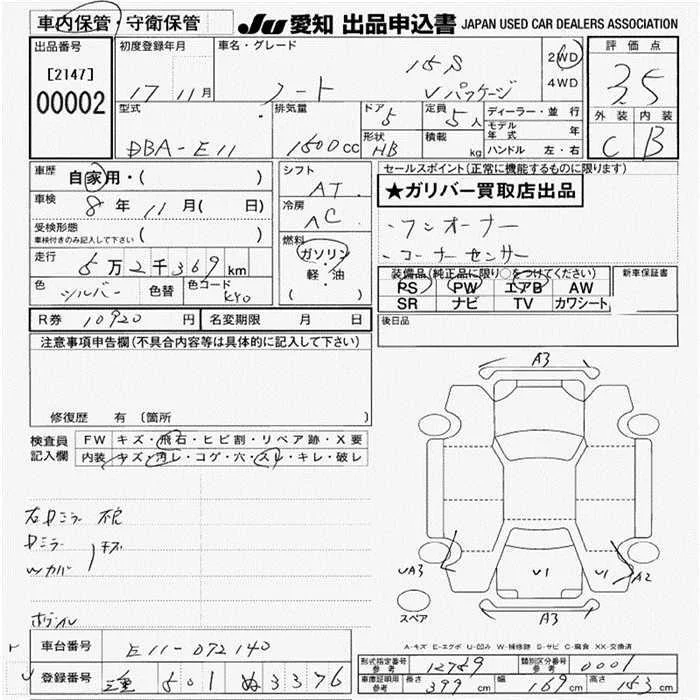 車内保管・守衛保管
JU 愛知 出品申込書 JAPAN USED CAR DEALERS ASSOCIATION
出品番号
[2147]
00002
初度登録年月
17 11月
車名・グレード
ノート
15S
Vパッケージ
2WD
4WD
評価点
3.5
外装 内装
C B
型式
DBA-E11
排気量
1500cc
ドア
5
形状
HB
定員
5人
積載
kg
ディーラー・並行
モデル年式 年
ハンドル 左・右
車歴
自家用・( )
車検
8年 11月( 日)
受検形態
車検付きのみ記入して下さい ( )
走行
5万2千369km
色
シルバー
色替
色コード
KY0
シフト
AT
冷房
AC
燃料
ガソリン
・
軽・油
( )
セールスポイント(正常に機能するものに限ります)
★ガリバー買取店出品
・ワンオーナー
・コーナーセンサー
装備品(純正品に限り○をつけてください)
新車保証書
PS PW エアB AW
SR ナビ TV カワシート
R券 10920円
名変期限 月 日
後日品
注意事項申告欄(不具合内容等は具体的に記入して下さい)
修復歴 有 (箇所
検査員
記入欄
FW キズ・飛石・ヒビ割・リペア跡・X要
内装 キズ・汚レ・コゲ・穴・スレ・キレ・破レ
右Dミラー 不良
Dミラー
Wカバー
キズ
A3
UA3
U1
U1
A2
スペア
A3
A-キズ E-エクボ U-凹み W-補修跡 S-サビ C-腐食 XX-交換済
車台番号
E11-072140
登録番号
501 ぬ 3376
型式指定番号
参考
12759
類別区分番号
参考
0001
車庫証明用
参考
長さ 399cm 幅 169cm 高さ 153cm